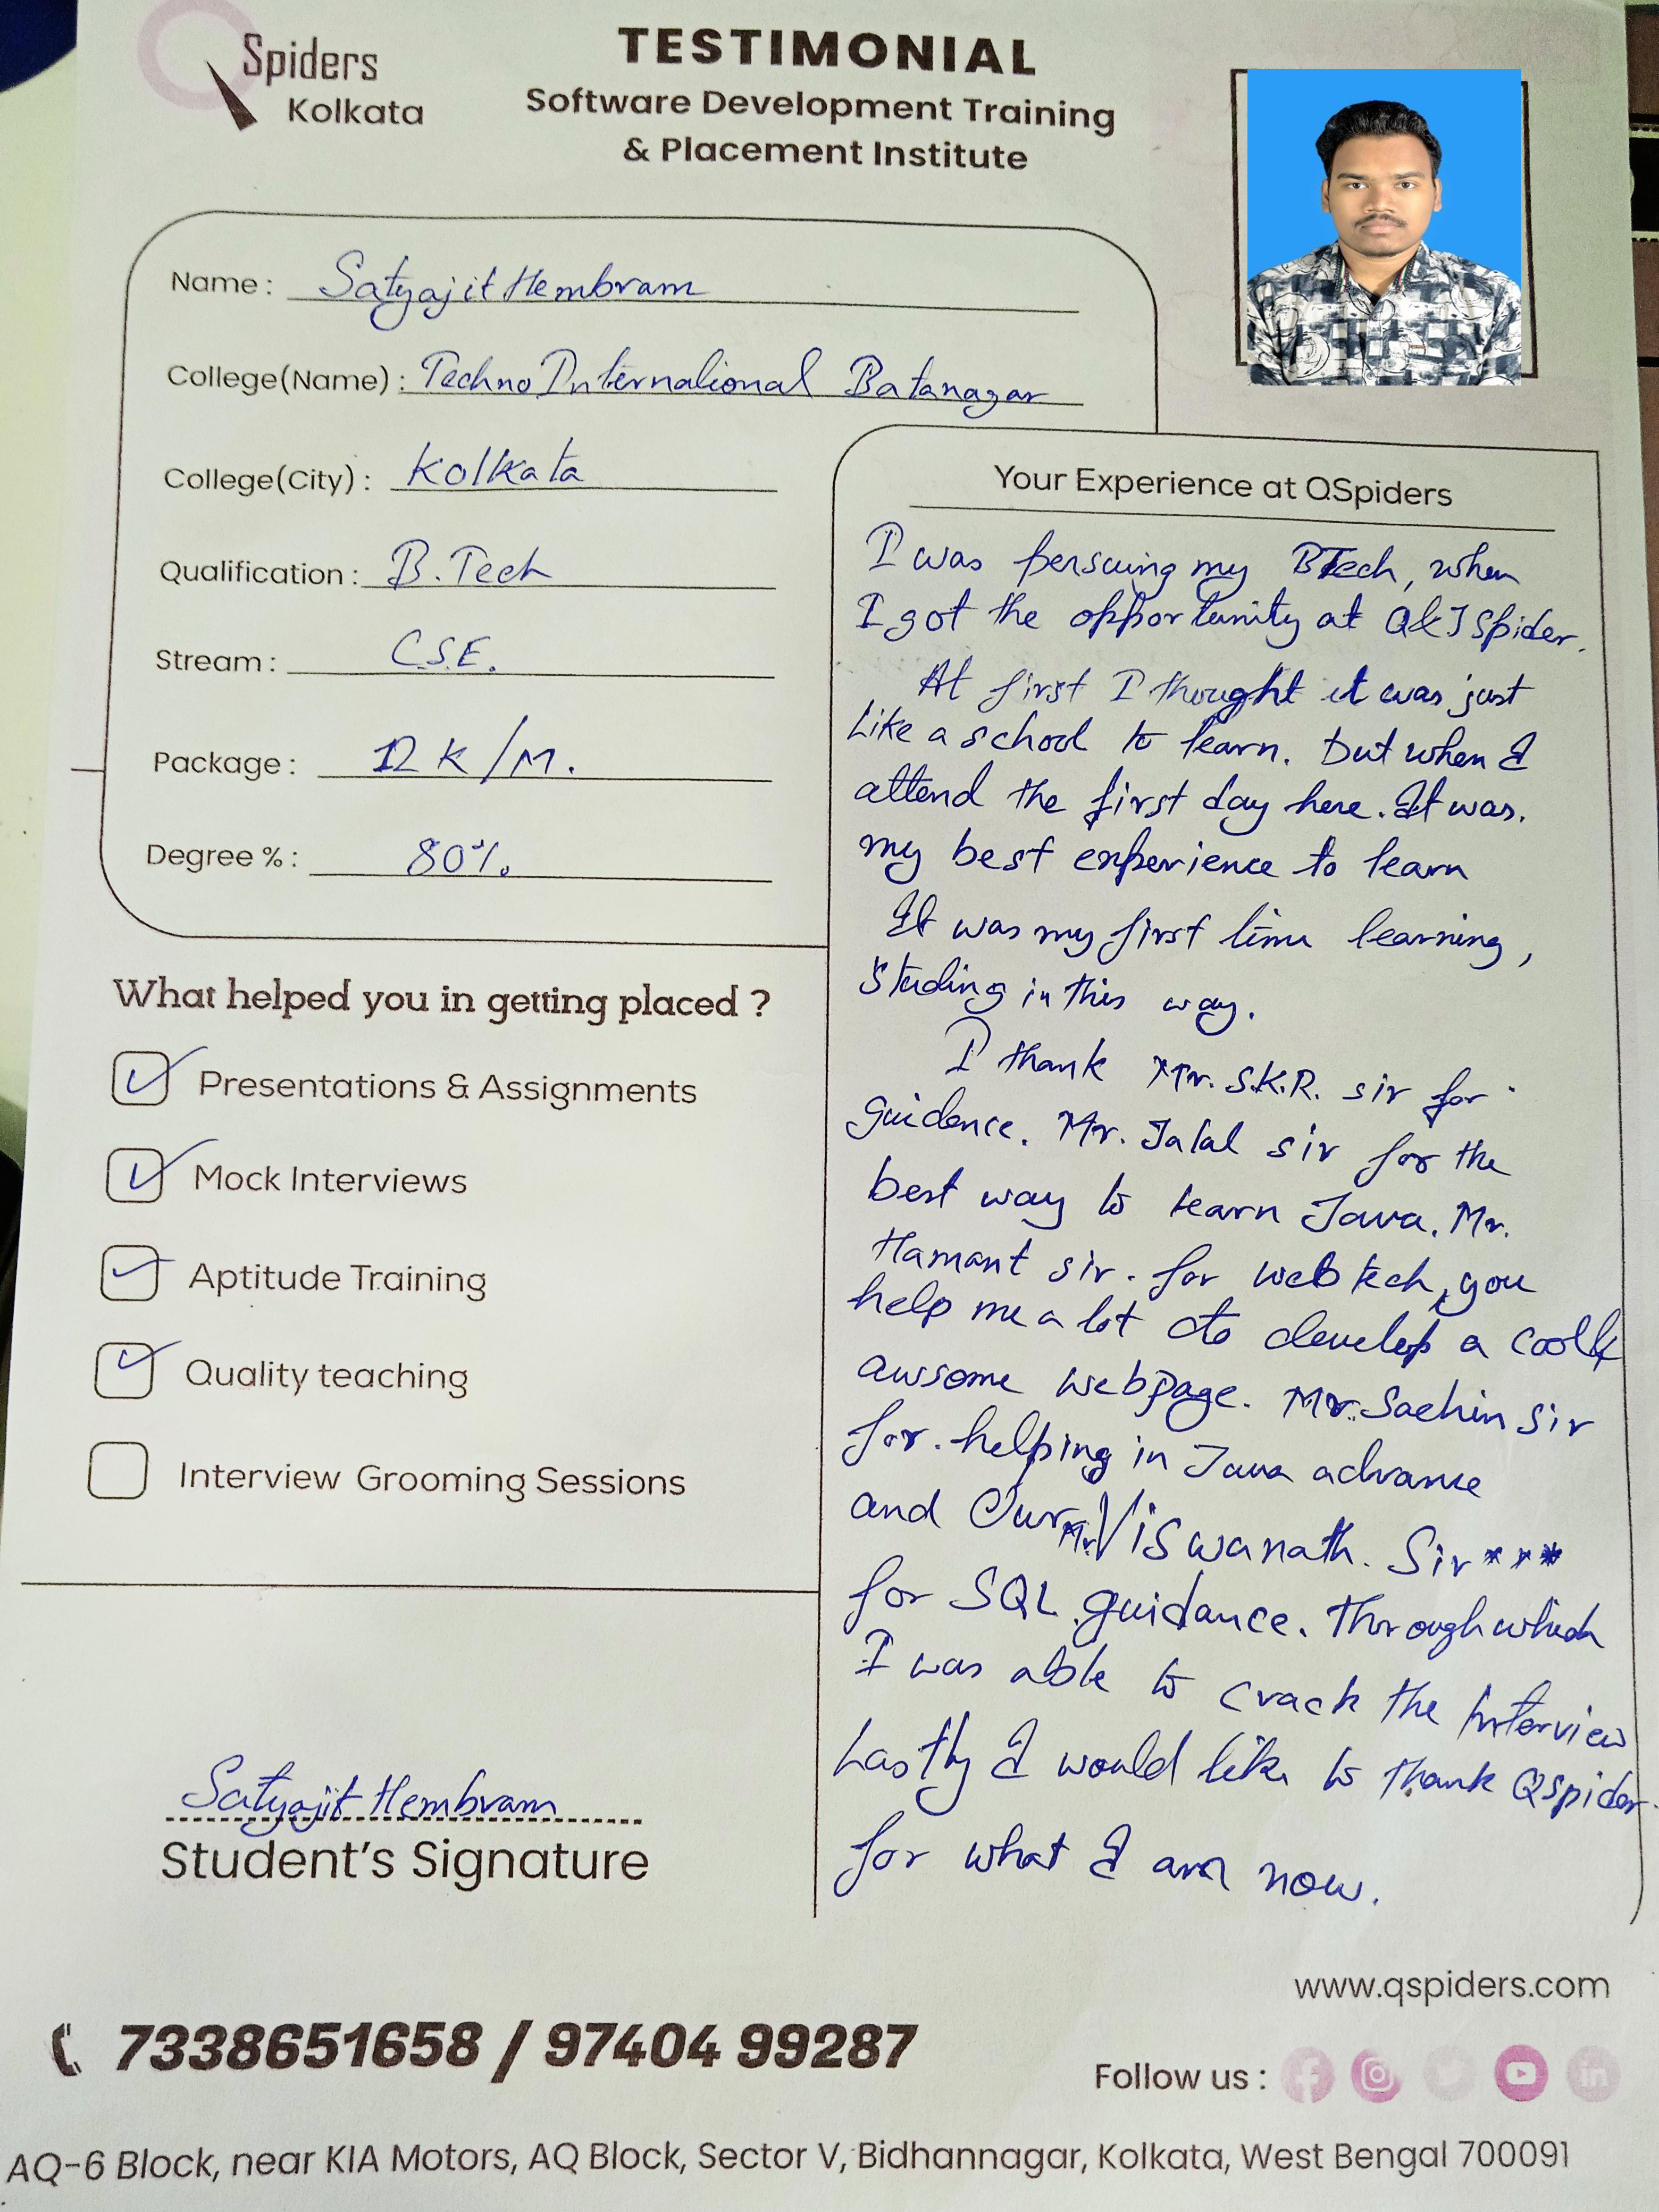 Spiders
Kolkata
TESTIMONIAL
Software Development Training
& Placement Institute
Name : Satyajit Hembram
College(Name) : Techno International Batanagar
College(City) : Kolkata
Qualification : B.Tech
Stream : C.S.E.
Package : 12 K/M.
Degree % : 80%
What helped you in getting placed ?
Presentations & Assignments
Mock Interviews
Aptitude Training
Quality teaching
Interview Grooming Sessions
Satyajit Hembram
Student's Signature
Your Experience at QSpiders
I was persuing my BTech, when
I got the opportunity at Q&J Spider.
At first I thought it was just
Like a school to learn. But when I
attend the first day here. It was.
my best experience to learn
It was my first time learning,
studing in this way.
I thank Mr. S.K.R. sir for
guidence. Mr. Jalal sir for the
best way to learn Java. Mr.
Hamant sir. for web tech, you
help me a lot to develop a cool &
awsome webpage. Mr. Sachin sir
for. helping in Java advance
and Our Mr. Viswanath. Sir ***
for SQL guidance. Through which
I was able to crack the Interview
Lastly I would like to thank Qspider.
for what I am now.
www.qspiders.com
7338651658 / 97404 99287
Follow us :
AQ-6 Block, near KIA Motors, AQ Block, Sector V, Bidhannagar, Kolkata, West Bengal 700091